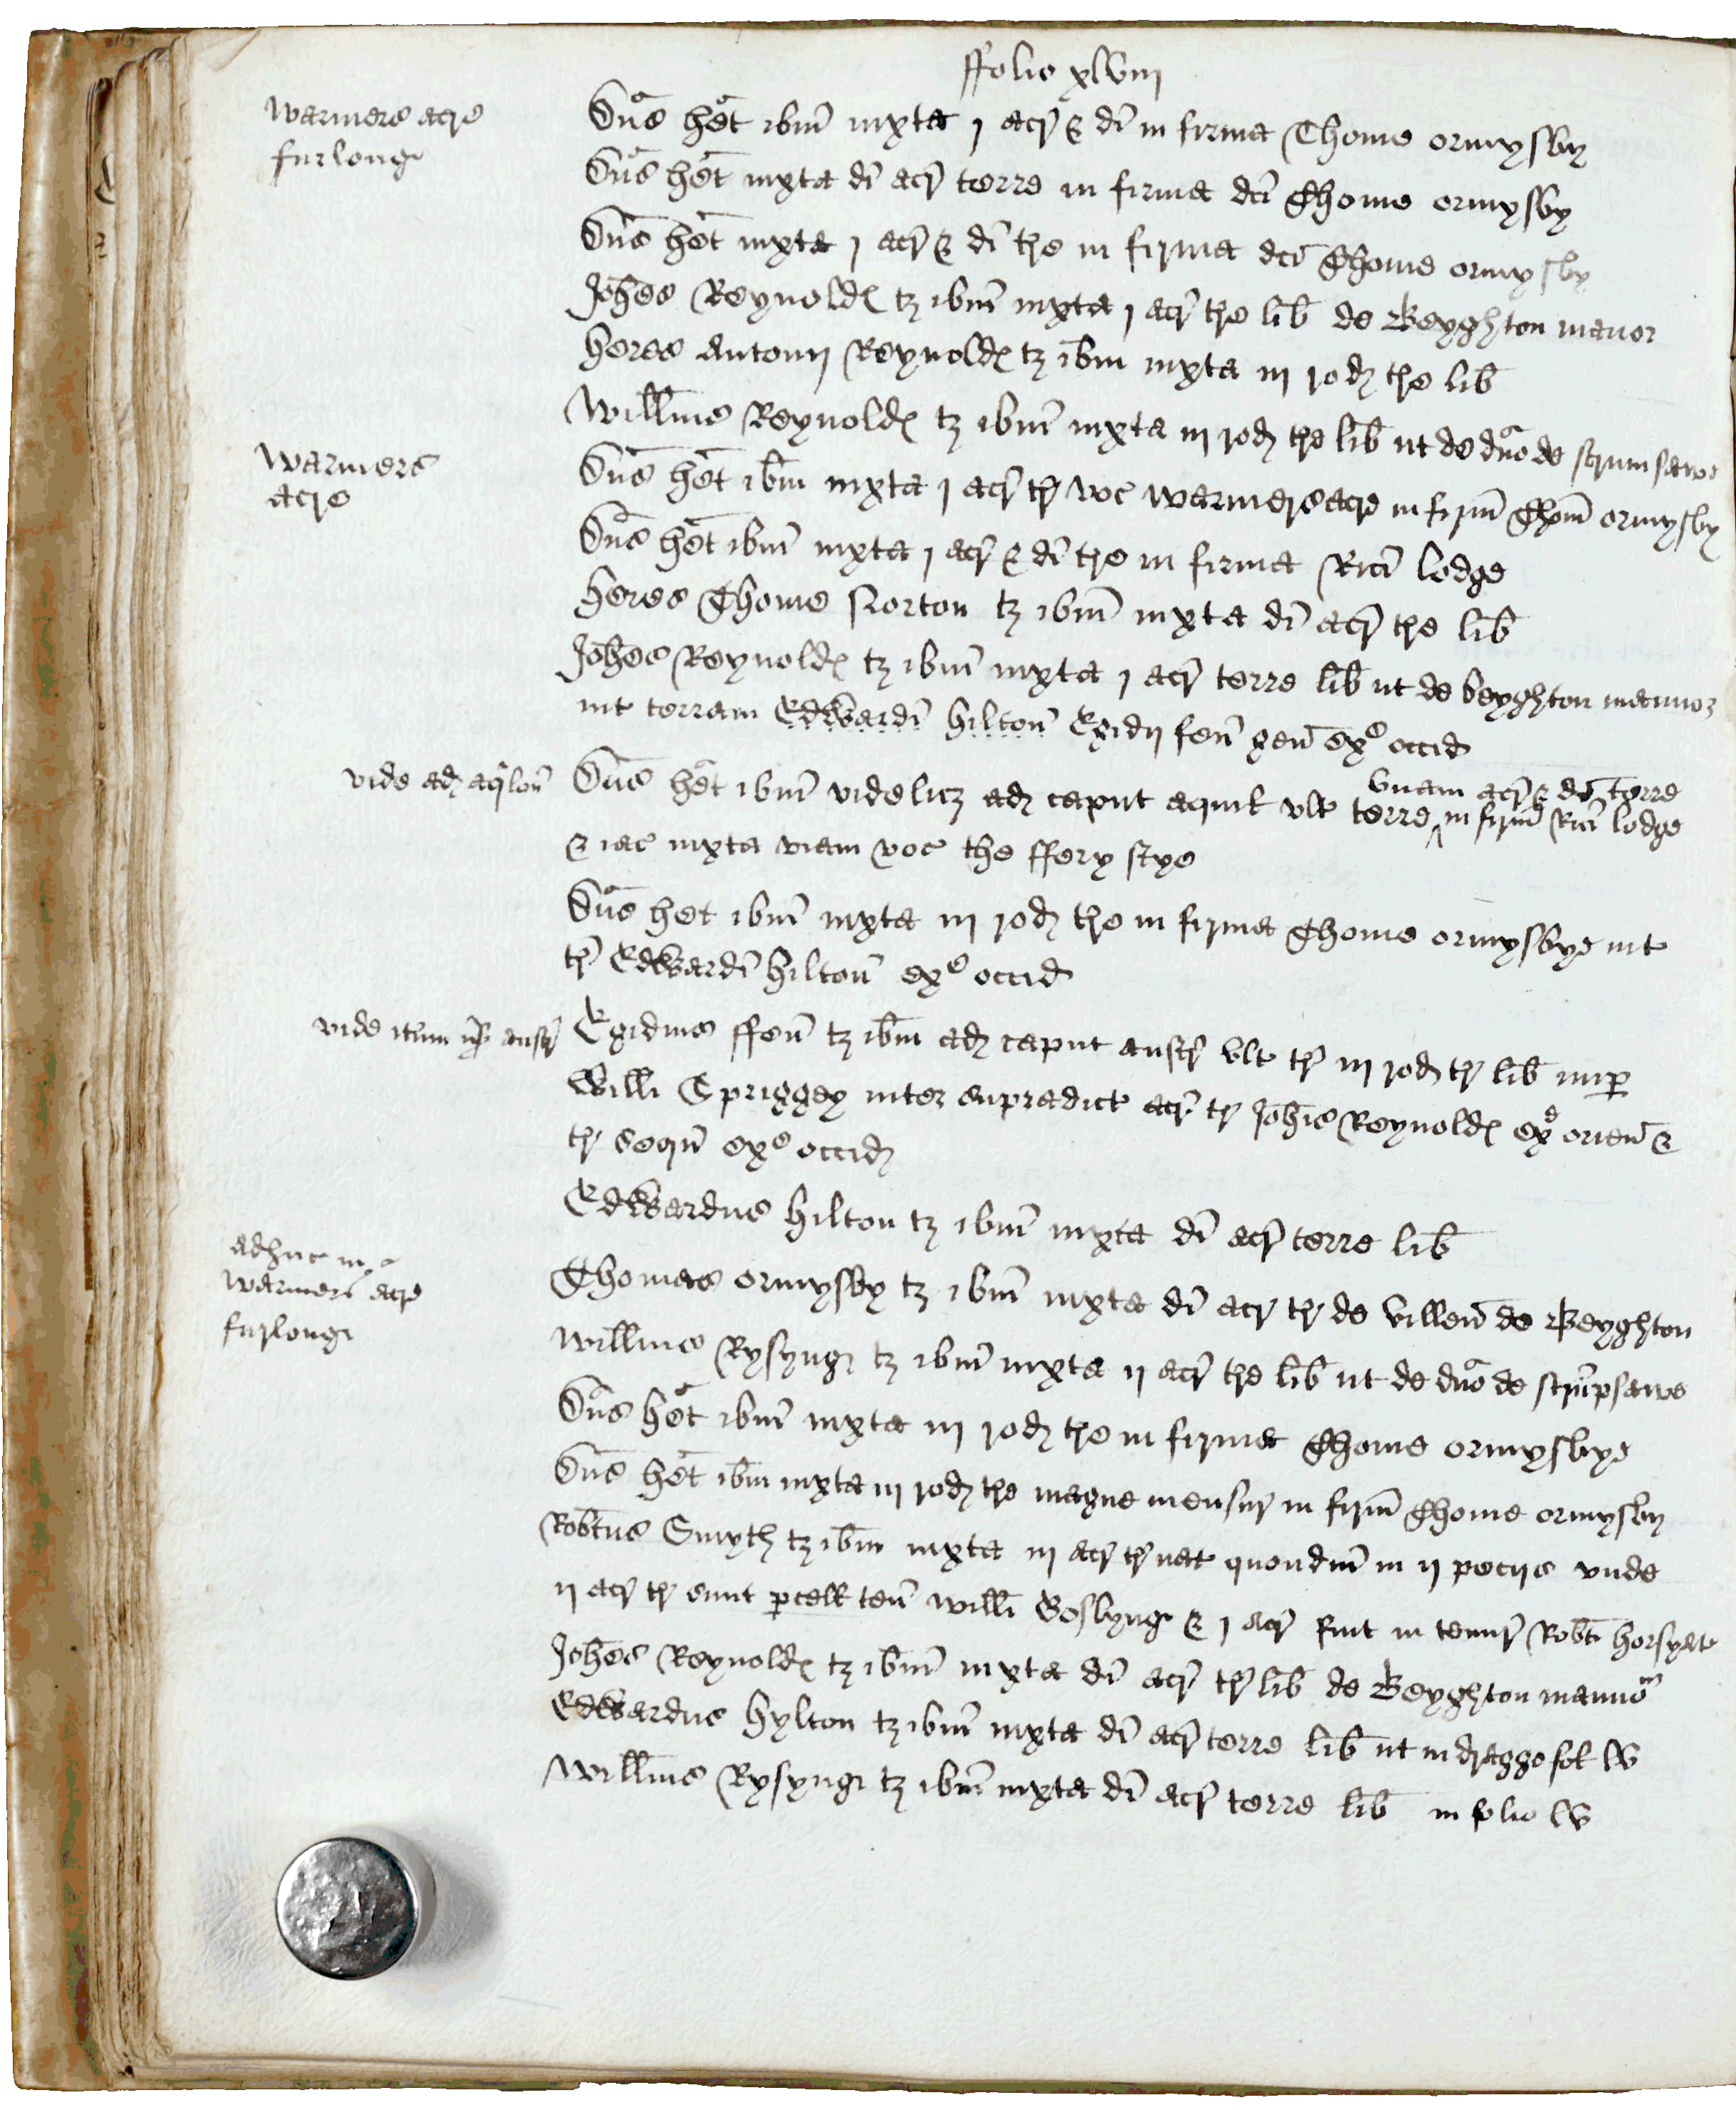 ffolio xlviij
Warmers acr̄e
furlonge
Dn̄s het ibm̄ iuxta j acr̄ & dī in firma Thome ormysby
Dn̄s het iuxta dī acr̄ terre in firma dcī Thome ormysby
Dn̄s het iuxta j acr̄ & dī tr̄e in firma dcī Thome ormysby
Joh̄es Reynoldes tz ibm̄ iuxta j acr̄ tr̄e lib̄ de Beyghton manor
heres Antonij Reynoldes tz ibm̄ iuxta iij rod tr̄e lib̄
Willm̄s Reynoldes tz ibm̄ iuxta iij rod tr̄e lib̄ ut de dn̄o de
Warmers
acre
Dn̄s het ibm̄ iuxta j acr̄ tr̄ voc Warmersacre in firm̄ Thom̄ ormysby
Dn̄s het ibm̄ iuxta j acr̄ & dī tr̄e in firma Ricī lodge
heres Thome Norton tz ibm̄ iuxta dī acr̄ tr̄e lib̄
Joh̄es Reynoldes tz ibm̄ iuxta j acr̄ terre lib̄ ut de beyghton mannor
int terram Edwardi hilton̄ Egidij fenn̄ gen̄ ex^e occid
vide ad aqilon̄
Dn̄s het ibm̄ videlicz ad caput aquil vlt terre in firm̄ Ricī lodge
vnam acr̄ & dī terre
& iac iuxta viam voc the ffery stye
Dn̄s het ibm̄ iuxta iij rod tr̄e in firma Thome ormysbye int
tr̄ Edwardi hilton̄ ex^e occid
vide austr̄
Egidius ffenn̄ tz ibm̄ ad caput austr̄ vlt tr̄ iij rod tr̄ lib̄ nup
Willī Spriggey inter supradict acr̄ tr̄ Joh̄is Reynoldes ex^e orien̄ &
tr̄ sequn̄ ex^e occid
Edwardus hilton tz ibm̄ iuxta dī acr̄ terre lib̄
adhuc in
Warmers acre
furlonge
Thomas ormysby tz ibm̄ iuxta dī acr̄ tr̄ de villen̄ de Beyghton
Willm̄s Rysynge tz ibm̄ iuxta ij acr̄ tr̄e lib̄ ut de dn̄o de
Dn̄s het ibm̄ iuxta iij rod tr̄e in firma Thome ormysbye
Dn̄s het ibm̄ iuxta iij rod tr̄e magne mensur̄ in firm̄ Thome ormysby
Robtūs Smyth tz ibm̄ iuxta iij acr̄ tr̄ nat quondm̄ in ij pecijs vnde
ij acr̄ tr̄ sunt pcell ten̄ Willī Goslynge & j acr̄ fuit in tenur̄ Robt̄
Joh̄es Reynoldes tz ibm̄ iuxta dī acr̄ tr̄ lib̄ de Beyghton mannor
Edwardus hylton tz ibm̄ iuxta dī acr̄ terre lib̄ ut in dragge fol lv
Willm̄s Rysynge tz ibm̄ iuxta dī acr̄ terre lib̄ in folio lv